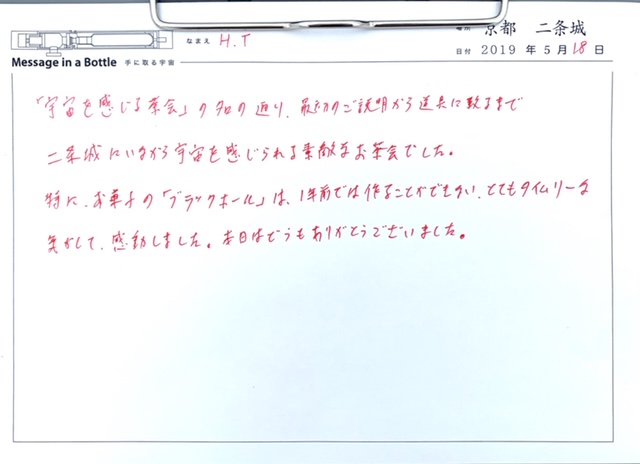 なまえ H.T
場所 京都 二条城
日付 2019 年 5 月 18 日
Message in a Bottle 手に取る宇宙
「宇宙を感じる茶会」の名の通り、最初のご説明から道具に致るまで
二条城にいながら宇宙を感じられる素敵なお茶会でした。
特に、お菓子の「ブラックホール」は、1年前では作ることができない、とてもタイムリーな
気がして、感動しました。本日はどうもありがとうございました。